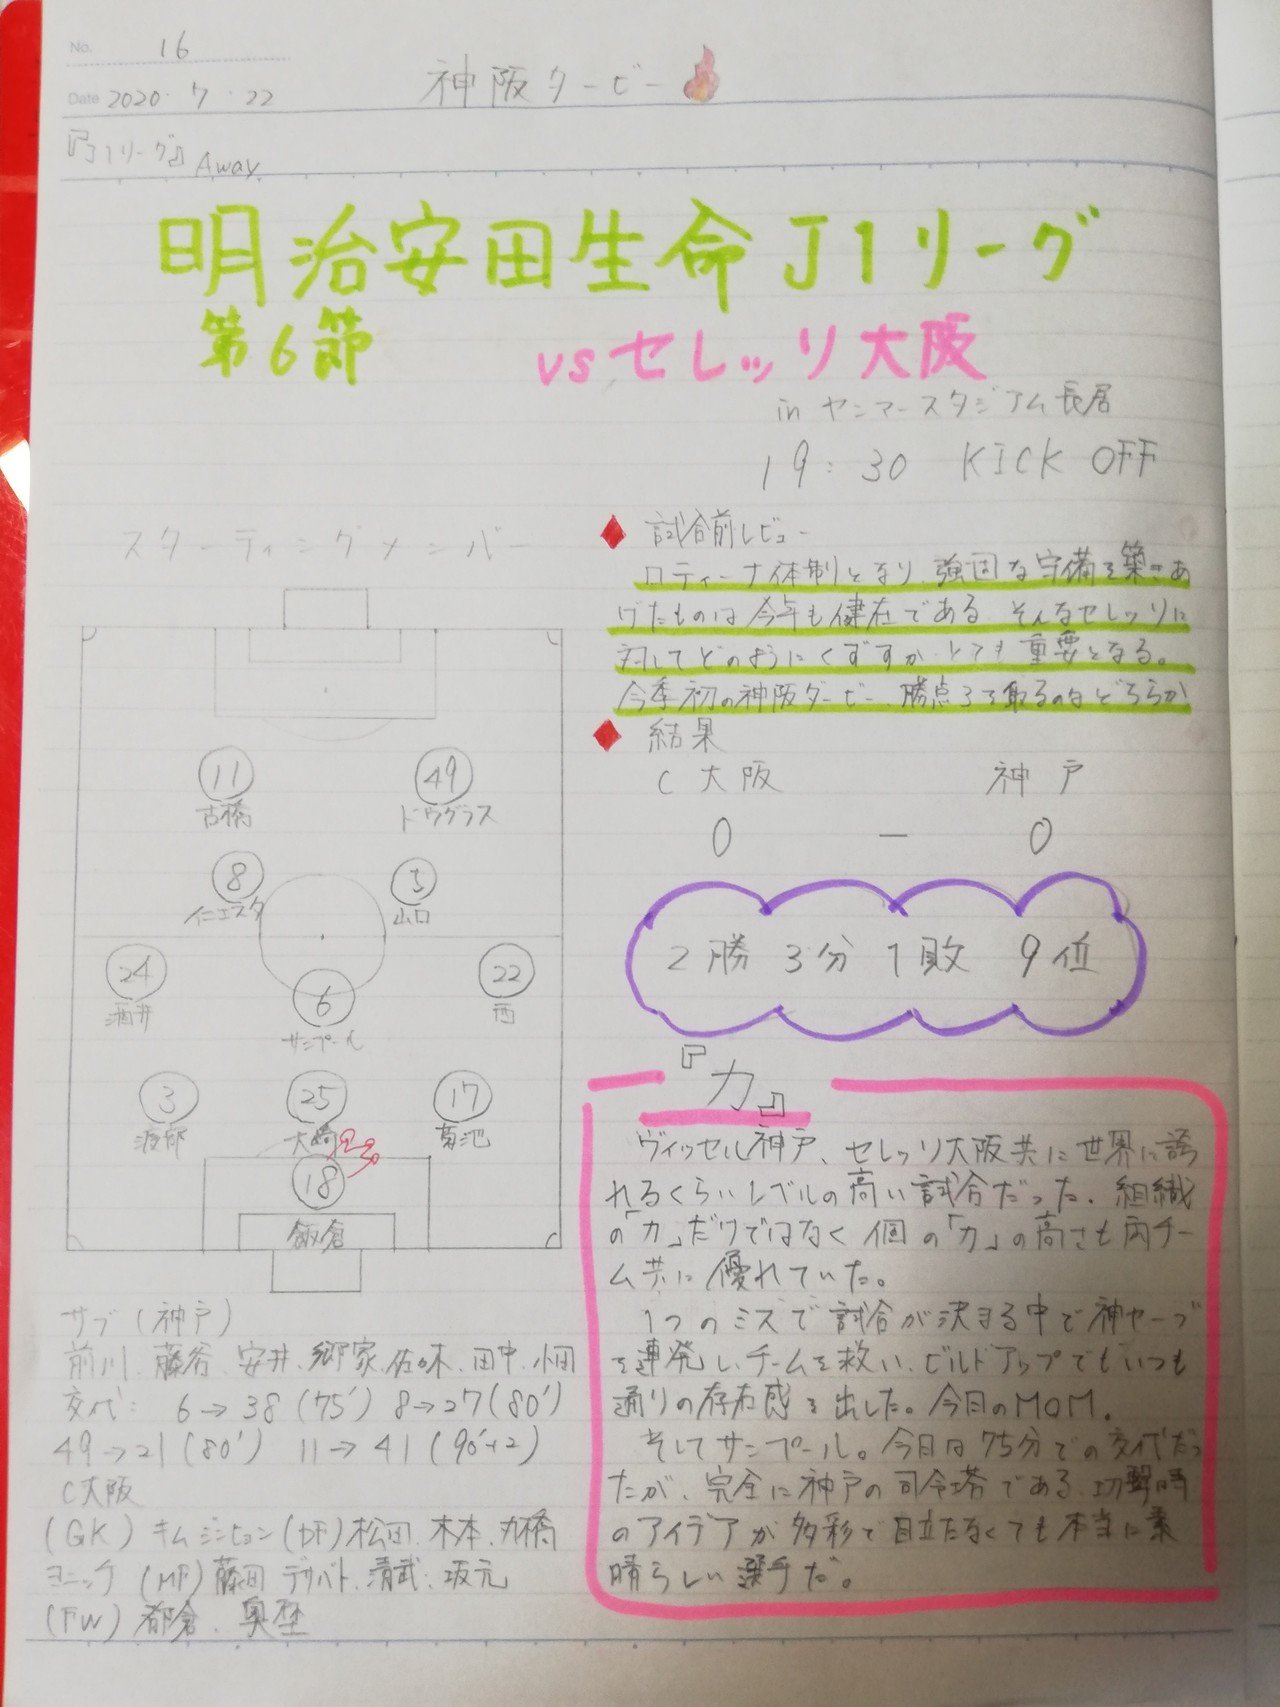 No. 16
Date 2020・7・22
神阪ダービー
『J1リーグ』Away
明治安田生命J1リーグ
第6節
vsセレッソ大阪
in ヤンマースタジアム長居
19:30 KICK OFF
スターティングメンバー
11
古橋
49
ドウグラス
8
イニエスタ
5
山口
24
酒井
22
西
6
サンペール
3
渡部
25
大﨑
17
菊池
18
飯倉
サブ(神戸)
前川、藤谷、安井、郷家、佐々木、田中、小田
交代: 6→38(75') 8→27(80')
49→21(80') 11→41(90'+2)
C大阪
(GK)キムジンヒョン(DF)松田、木本、丸橋
ヨニッチ(MF)藤田、デサバト、清武、坂元
(FW)都倉、奥埜
試合前レビュー
ロティーナ体制となり、強固な守備を築きあ
げたものは今年も健在である。そんなセレッソに
対してどのようにくずすかとても重要となる。
今季初の神阪ダービー、勝点3を取るのはどちらか
結果
C大阪 神戸
0 - 0
2勝 3分 1敗 9位
『力』
ヴィッセル神戸、セレッソ大阪共に世界に誇
れるくらいレベルの高い試合だった。組織
の「力」だけではなく個の「力」の高さも両チー
ム共に優れていた。
1つのミスで試合が決まる中で神セーブ
を連発し、チームを救い、ビルドアップでもいつも
通りの存在感を出した。今日のMOM。
そしてサンペール。今日は75分での交代だっ
たが、完全に神戸の司令塔である。攻撃時
のアイデアが多彩で目立たなくても本当に素
晴らしい選手だ。